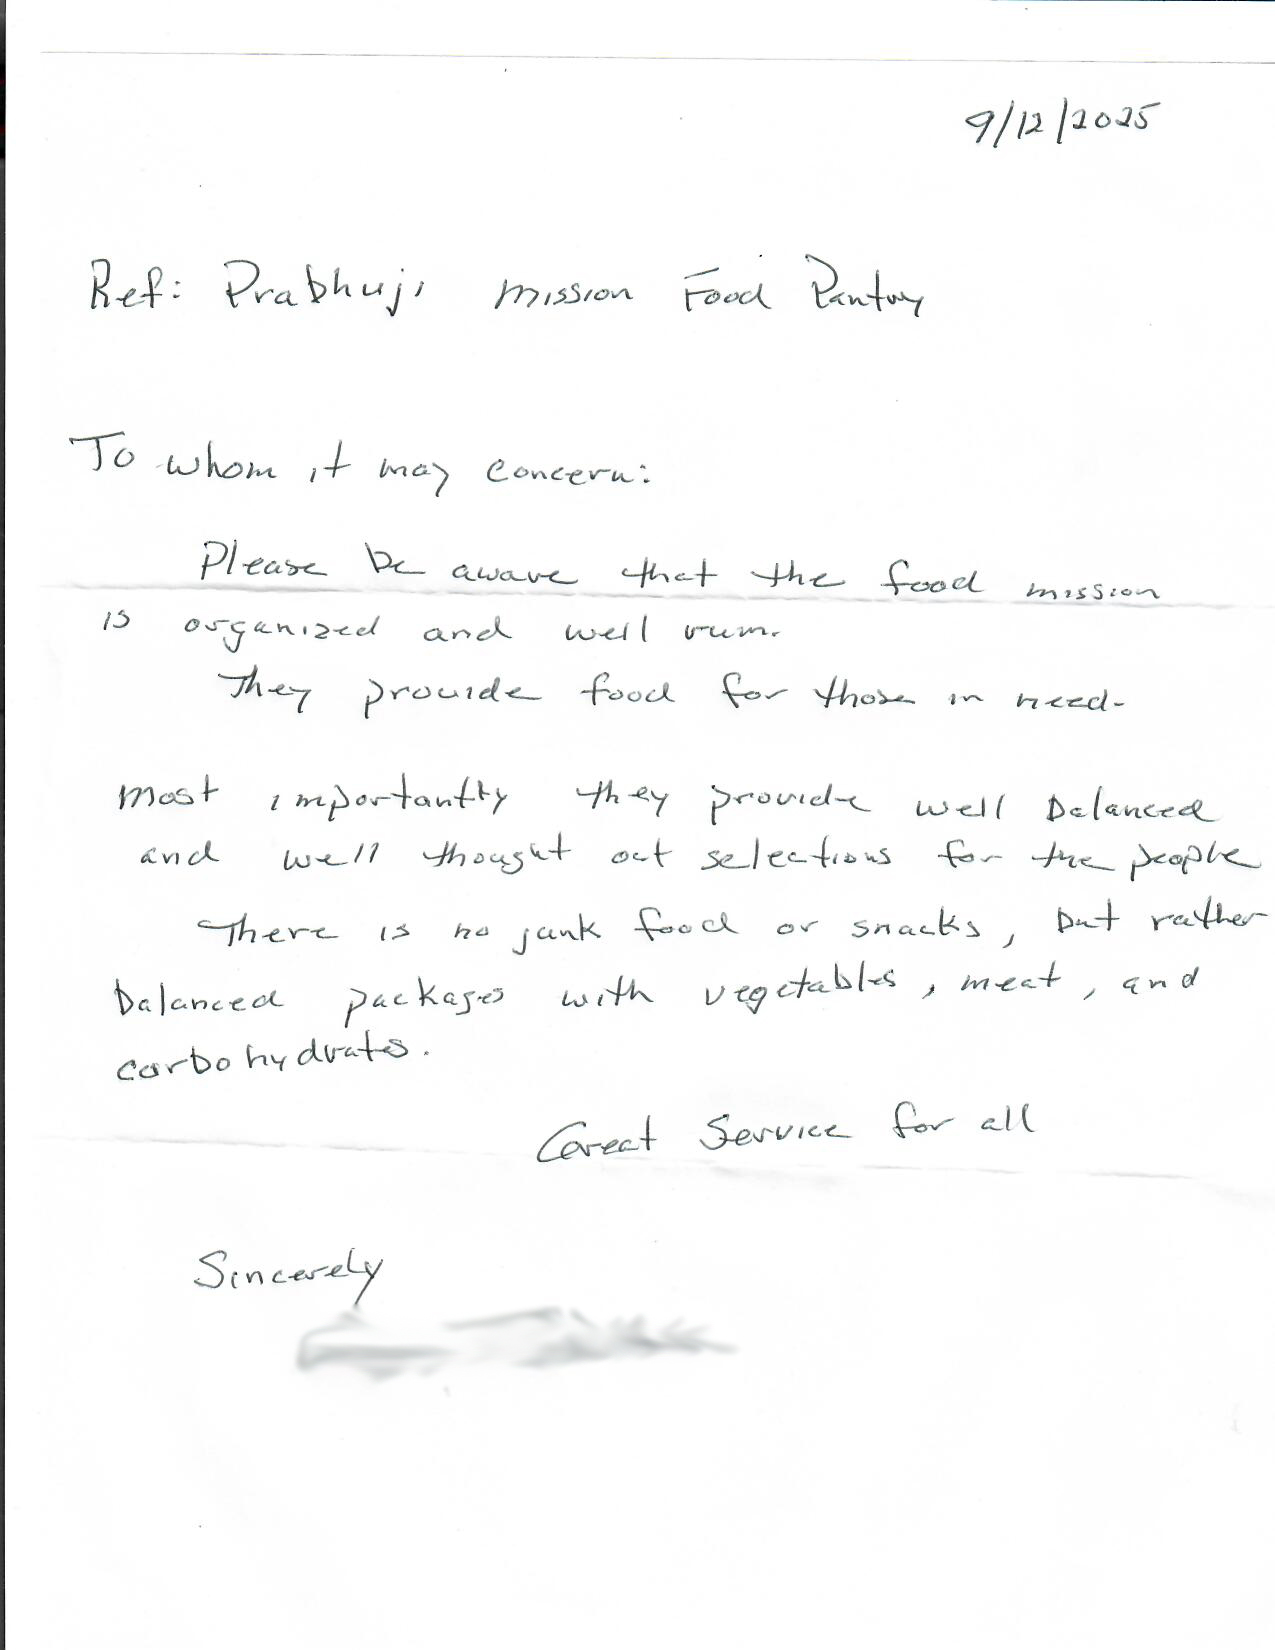 9/12/2025
Ref: Prabhuji mission Food Pantry
To whom it may concern:
Please be aware that the food mission
is organized and well run.
They provide food for those in need.
most importantly they provide well balanced
and well thought out selections for the people
There is no junk food or snacks, but rather
balanced packages with vegetables, meat, and
carbohydrates.
Great Service for all
Sincerely